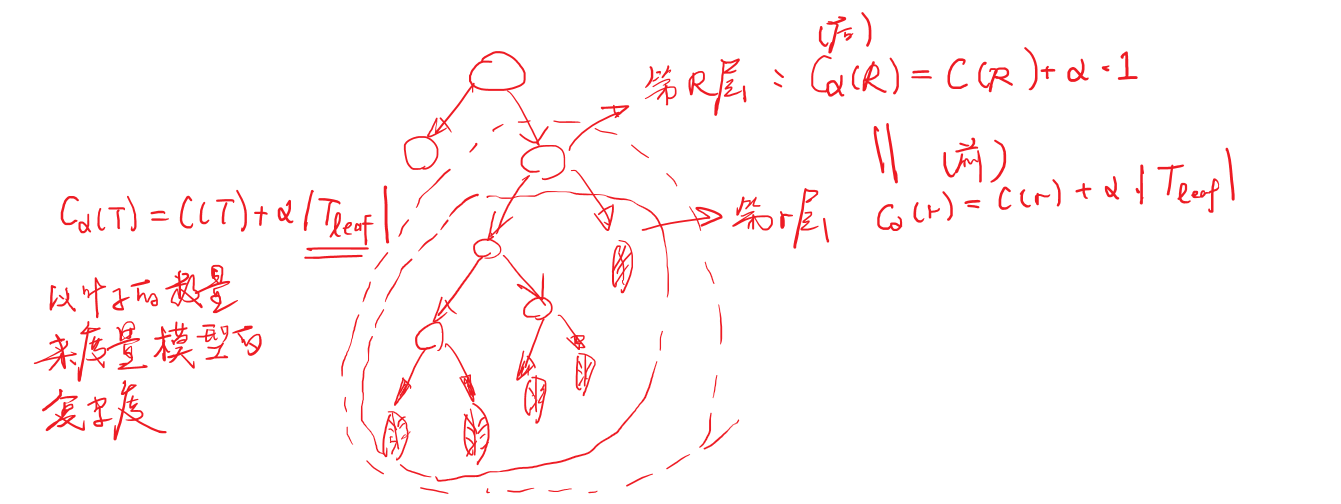 (后)
第R层: Cα(R) = C(R) + α·1
||
(前)
第r层 Cα(r) = C(r) + α·|Tleaf|
Cα(T) = C(T) + α|Tleaf|
以叶子的数量
来度量模型的
复杂度